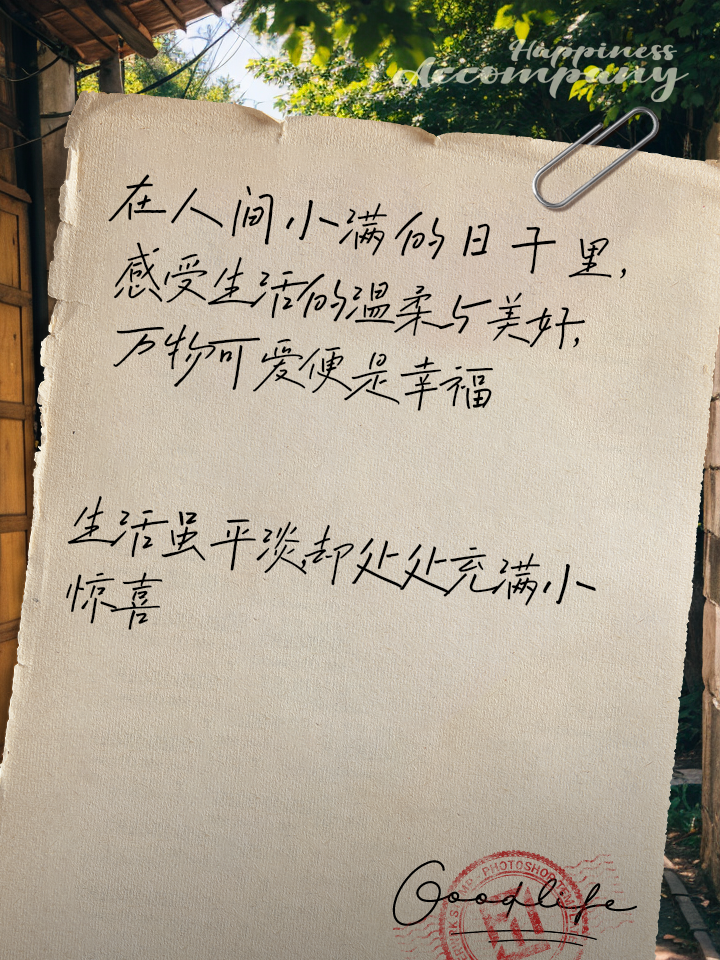 Happiness
Accompany
在人间小满的日子里,
感受生活的温柔与美好,
万物可爱便是幸福
生活虽平淡,却处处充满小
惊喜
PHOTOSHOP
Good life